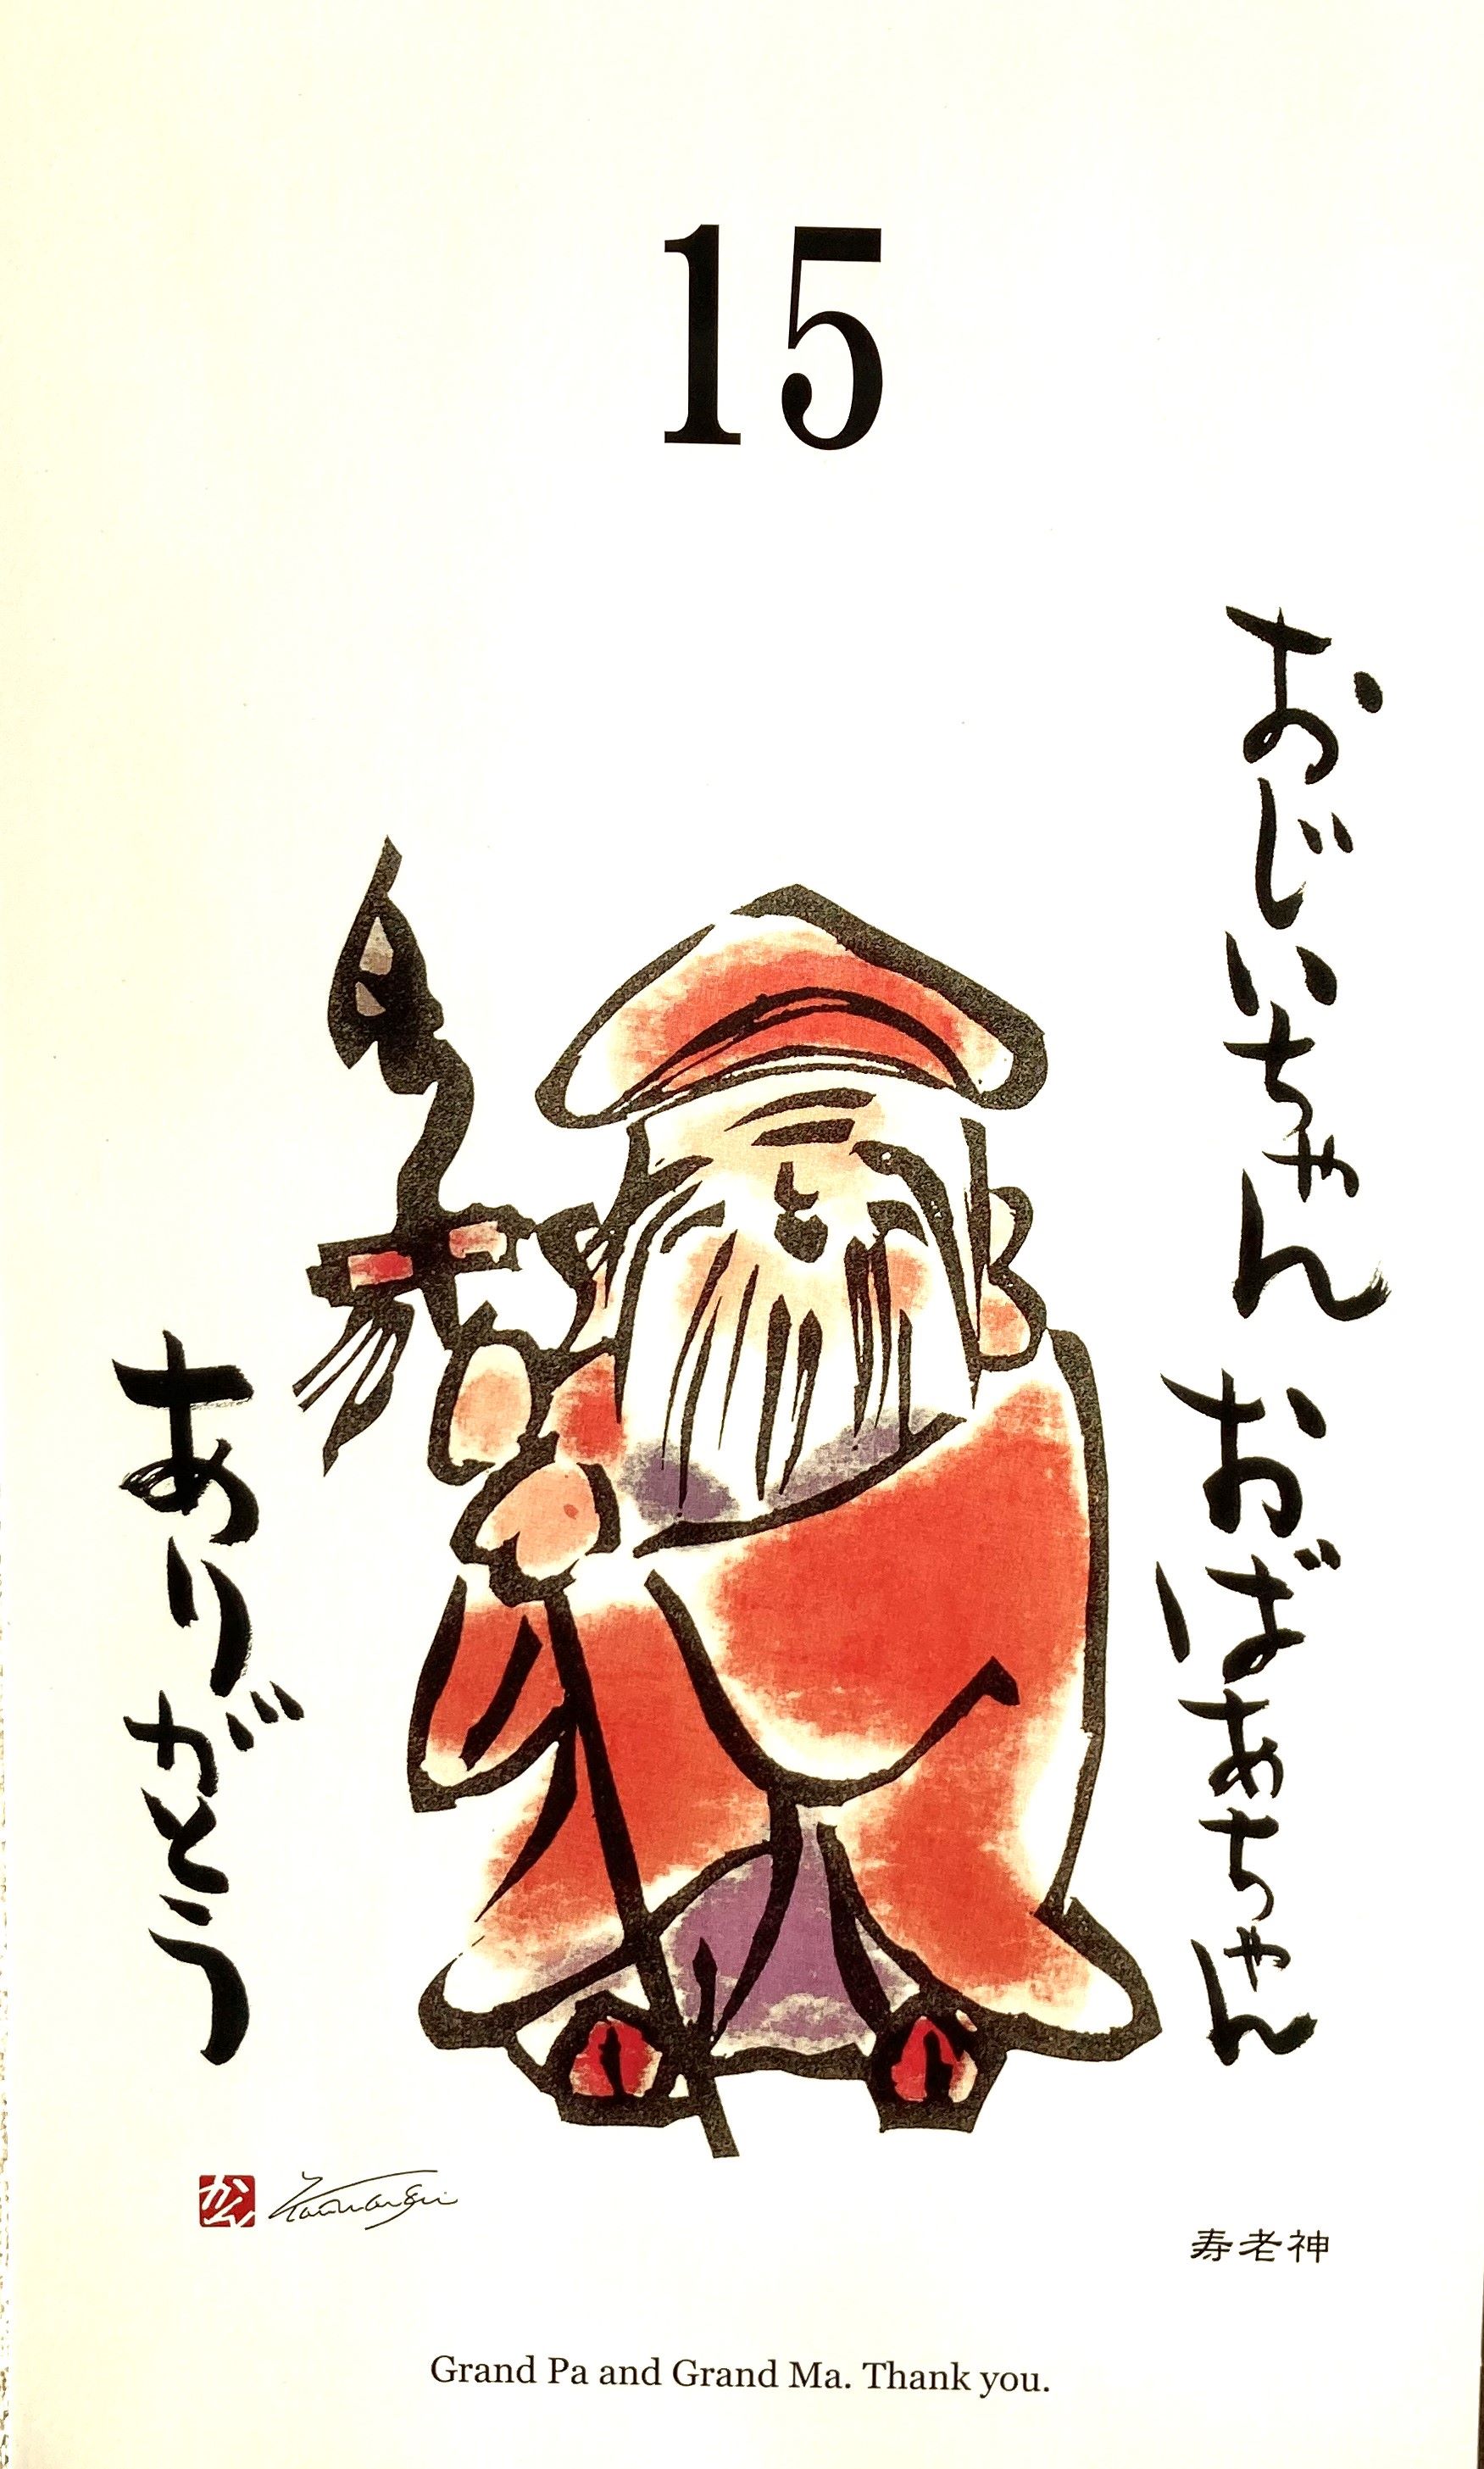 15
おじいちゃん おばあちゃん
ありがとう
かん
寿老神
Grand Pa and Grand Ma. Thank you.